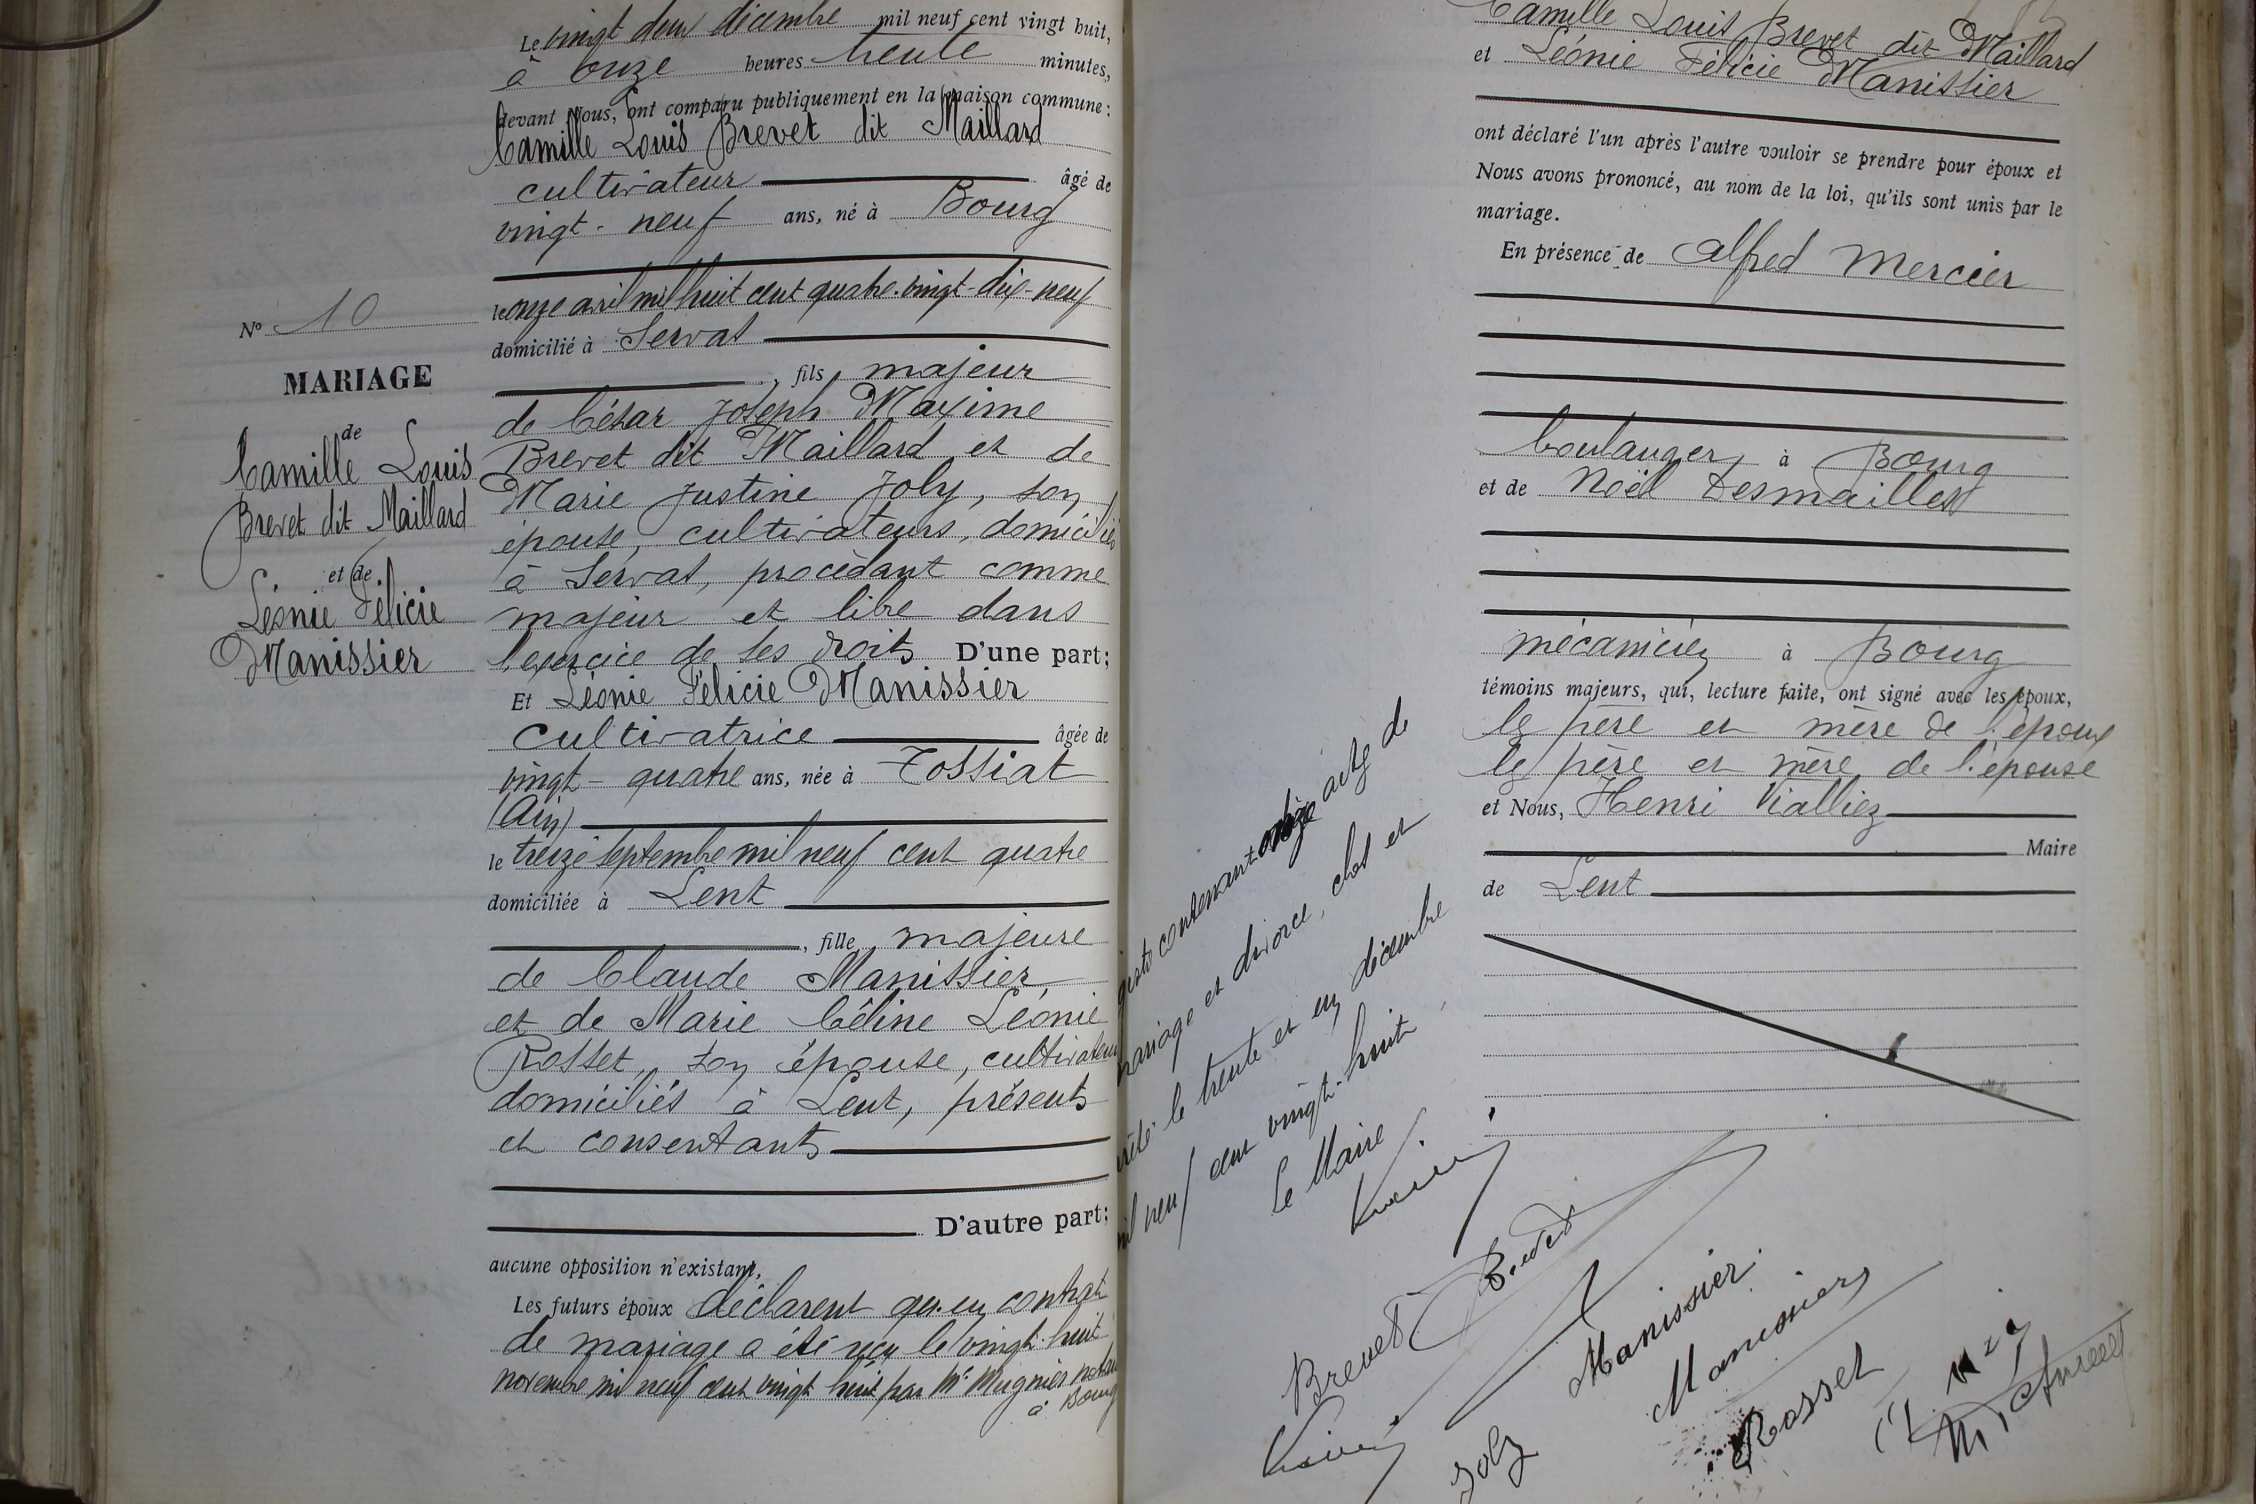 Le vingt deux décembre mil neuf cent vingt huit,
à onze heures trente minutes,
devant Nous, ont comparu publiquement en la maison commune :
Camille Louis Brevet dit Maillard
cultivateur âgé de
vingt-neuf ans, né à Bourg
le onze avril mil huit cent quatre-vingt-dix-neuf
domicilié à Servas
, fils majeur
de César Joseph Maxime
Brevet dit Maillard et de
Marie Justine Joly, son
épouse, cultivateurs, domiciliés
à Servas, procédant comme
majeur et libre dans
l'exercice de ses droits D'une part;
Et Léonie Félicie Manissier
cultivatrice âgée de
vingt-quatre ans, née à Tossiat
(Ain)
le treize septembre mil neuf cent quatre
domiciliée à Lent
, fille majeure
de Claude Manissier
et de Marie Céline Léonie
Rosset, son épouse, cultivateurs
domiciliés à Lent, présents
et consentants
D'autre part;
aucune opposition n'existant,
Les futurs époux déclarent qu'un contrat
de mariage a été reçu le vingt-huit
novembre mil neuf cent vingt huit par Me Mugnier notaire
à Bourg
No 10
MARIAGE
de
Camille Louis
Brevet dit Maillard
et de
Léonie Félicie
Manissier
Camille Louis Brevet dit Maillard
et Léonie Félicie Manissier
ont déclaré l'un après l'autre vouloir se prendre pour époux et
Nous avons prononcé, au nom de la loi, qu'ils sont unis par le
mariage.
En présence de Alfred Mercier
boulanger à Bourg
et de Noël Desmailles
mécanicien à Bourg
témoins majeurs, qui, lecture faite, ont signé avec les époux,
le père et mère de l'époux
le père et mère de l'épouse
et Nous, Henri Vialliez
Maire
de Lent
contenant acte de
mariage et divorce, clos et
le trente et un décembre
mil neuf cent vingt-huit
Le Maire
Brevet
Brevet
Manissier
Manissier
Joly
Rosset